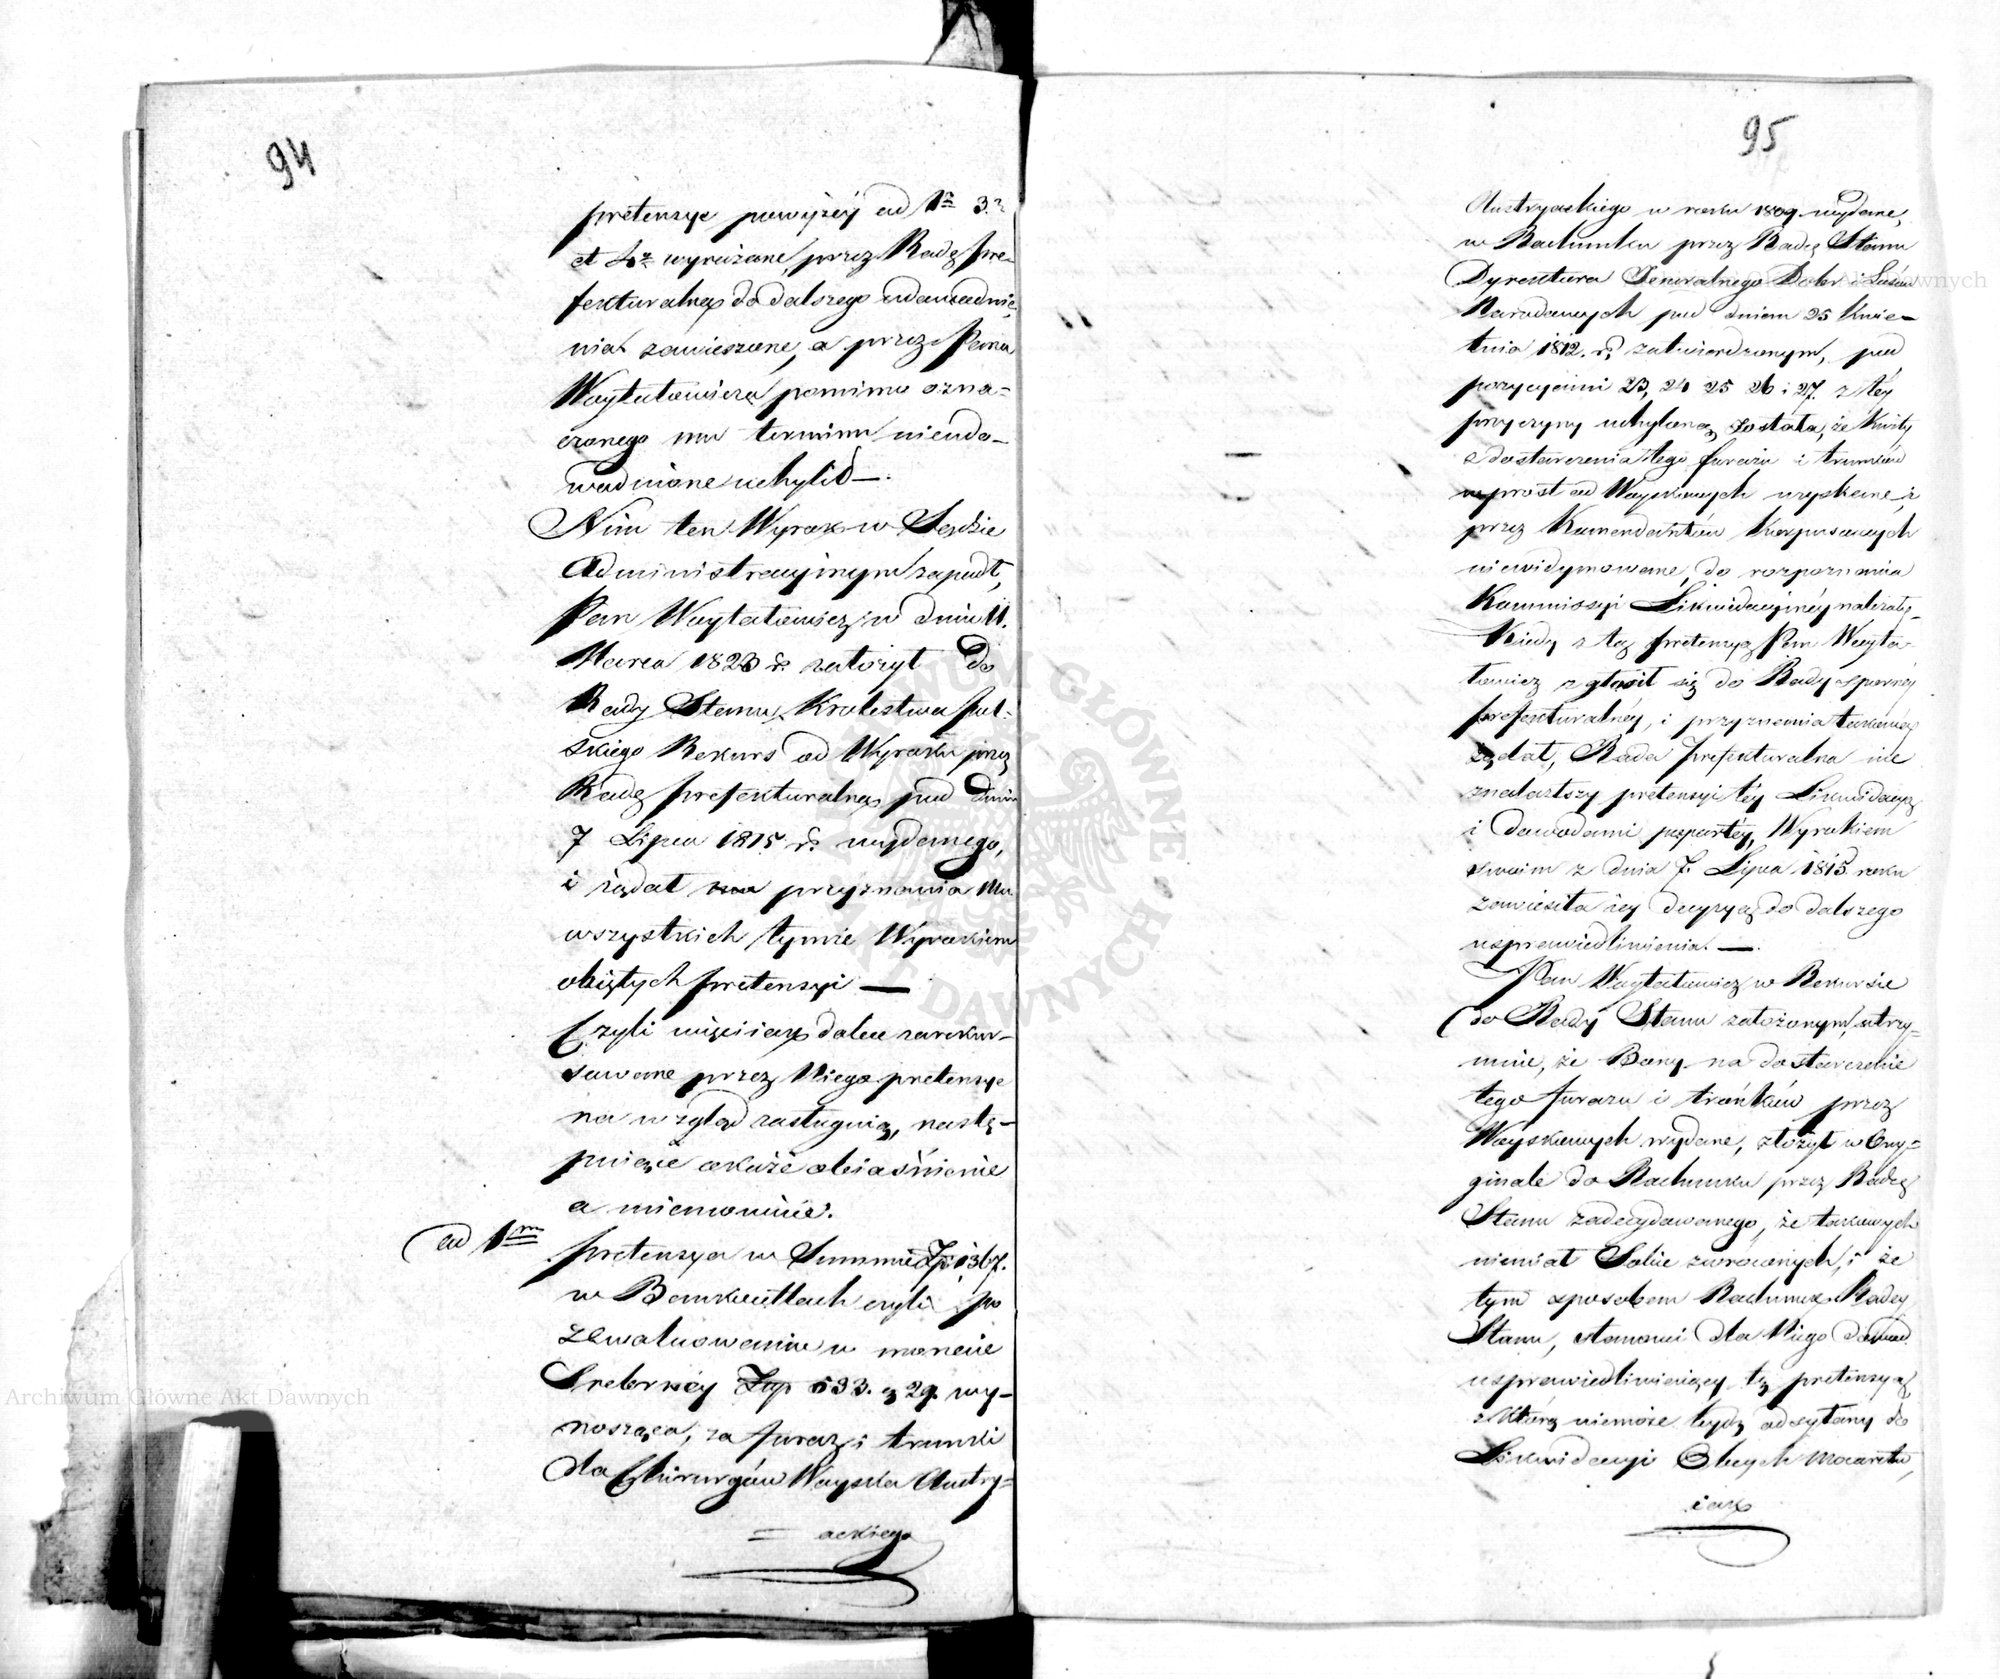 94
pretensye powyżéy ad 1º 3º
et 4º wyrażone, przez Radę Pre-
fekturalną do dalszego udowodnie-
nia zawieszone, a przez Pana
Woytatowicza pomimo ozna-
czonego mu terminu nieudo-
wodnione uchylił —.
Nim ten Wyrok w Sądzie
Administracyjnym zapadł,
Pan Woytatowicz w dniu 11.
Marca 1823 r. założył do
Rady Stanu Królestwa Pol-
skiego Rekurs od Wyroku przez
Radę Prefekturalną pod dniem
7 Lipca 1815 r. wydanego,
i żądał przyznania mu
wszystkich tymże Wyrokiem
obiętych pretensyi —
Czyli więc i iak dalece zarekur-
sowane przez Niego pretensye
na wzgląd zasługuią, nastę-
puiące okaże obiaśnienie
a mianowicie.
ad 1m pretensya w Summie Zp. 1367.
w Bankocetlach czyli po
zewaluowaniu w monecie
Srebrnéy Złp 533. g 29. wy-
nosząca, za furaż i trunki
dla Chirurgów Woyska Austry-
= ackiego
95
Austryackiego w roku 1809 wydane,
w Rachunku przez Radę Stanu
Dyrektora Generalnego Dóbr i Lasów
Narodowych pod dniem 25 Kwie-
tnia 1812. r. zatwierdzonym, pod
pozycyami 23, 24 25 26 i 27. z téy
przyczyny uchyloną została, że Kwity
z dostarczenia tego furażu i trunków
wprost od Woyskowych uzyskane, i
przez Komendantów Korpusowych
niewidymowane, do rozpoznania
Kommissyi Likwidacyjnéy należały.
Kiedy z tą pretensyą Pan Woyta-
towicz zgłosił się do Rady Sporney
prefekturalnéy, i przyznania takowéy
żądał, Rada Prefekturalna nie
znalazłszy pretensyi téy Likwidacyą
i dowodami popartéy, Wyrokiem
swoim z dnia 7. Lipca 1815 roku
zawiesiła iey decyzyą do dalszego
usprawiedliwienia. —.
Pan Woytatowicz w Rekursie
do Rady Stanu założonym, utrzy-
muie, że Bony na dostarczenie
tego furażu i trunków przez
Woyskowych wydane, złożył w Ory-
ginale do Rachunku przez Radę
Stanu zadecydowanego, że takowych
niemiał Sobie zwróconych, i że
tym sposobem Rachunek Rady
Stanu, stanowi dla Niego dowód
usprawiedliwiaiący tę pretensyą,
z którą niemoże bydź odsyłany do
Likwidacyi Obcych Mocarstw,
iak
Archiwum Główne Akt Dawnych